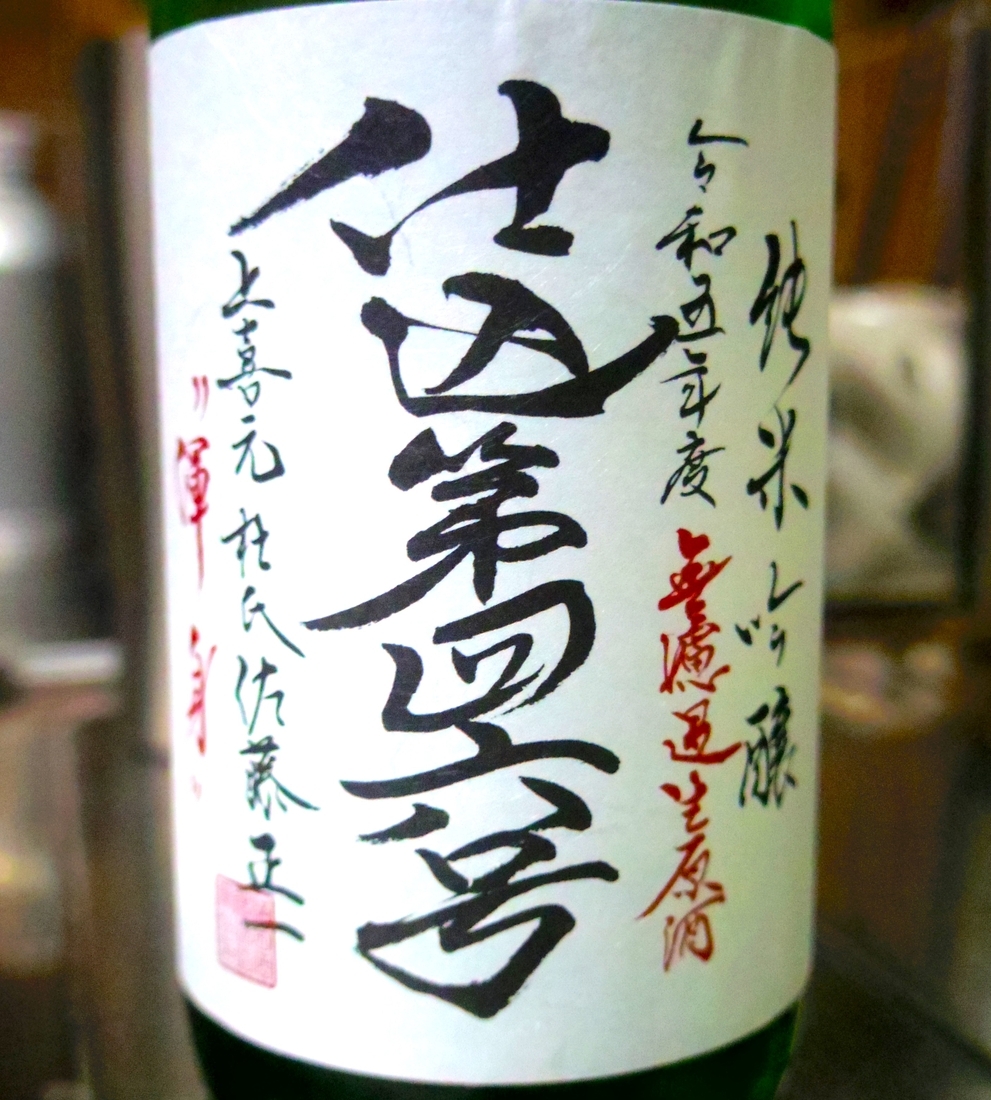 純米吟醸
令和五年度 無濾過生原酒
仕込第四六号
上喜元 杜氏 佐藤正一
〃渾身〃